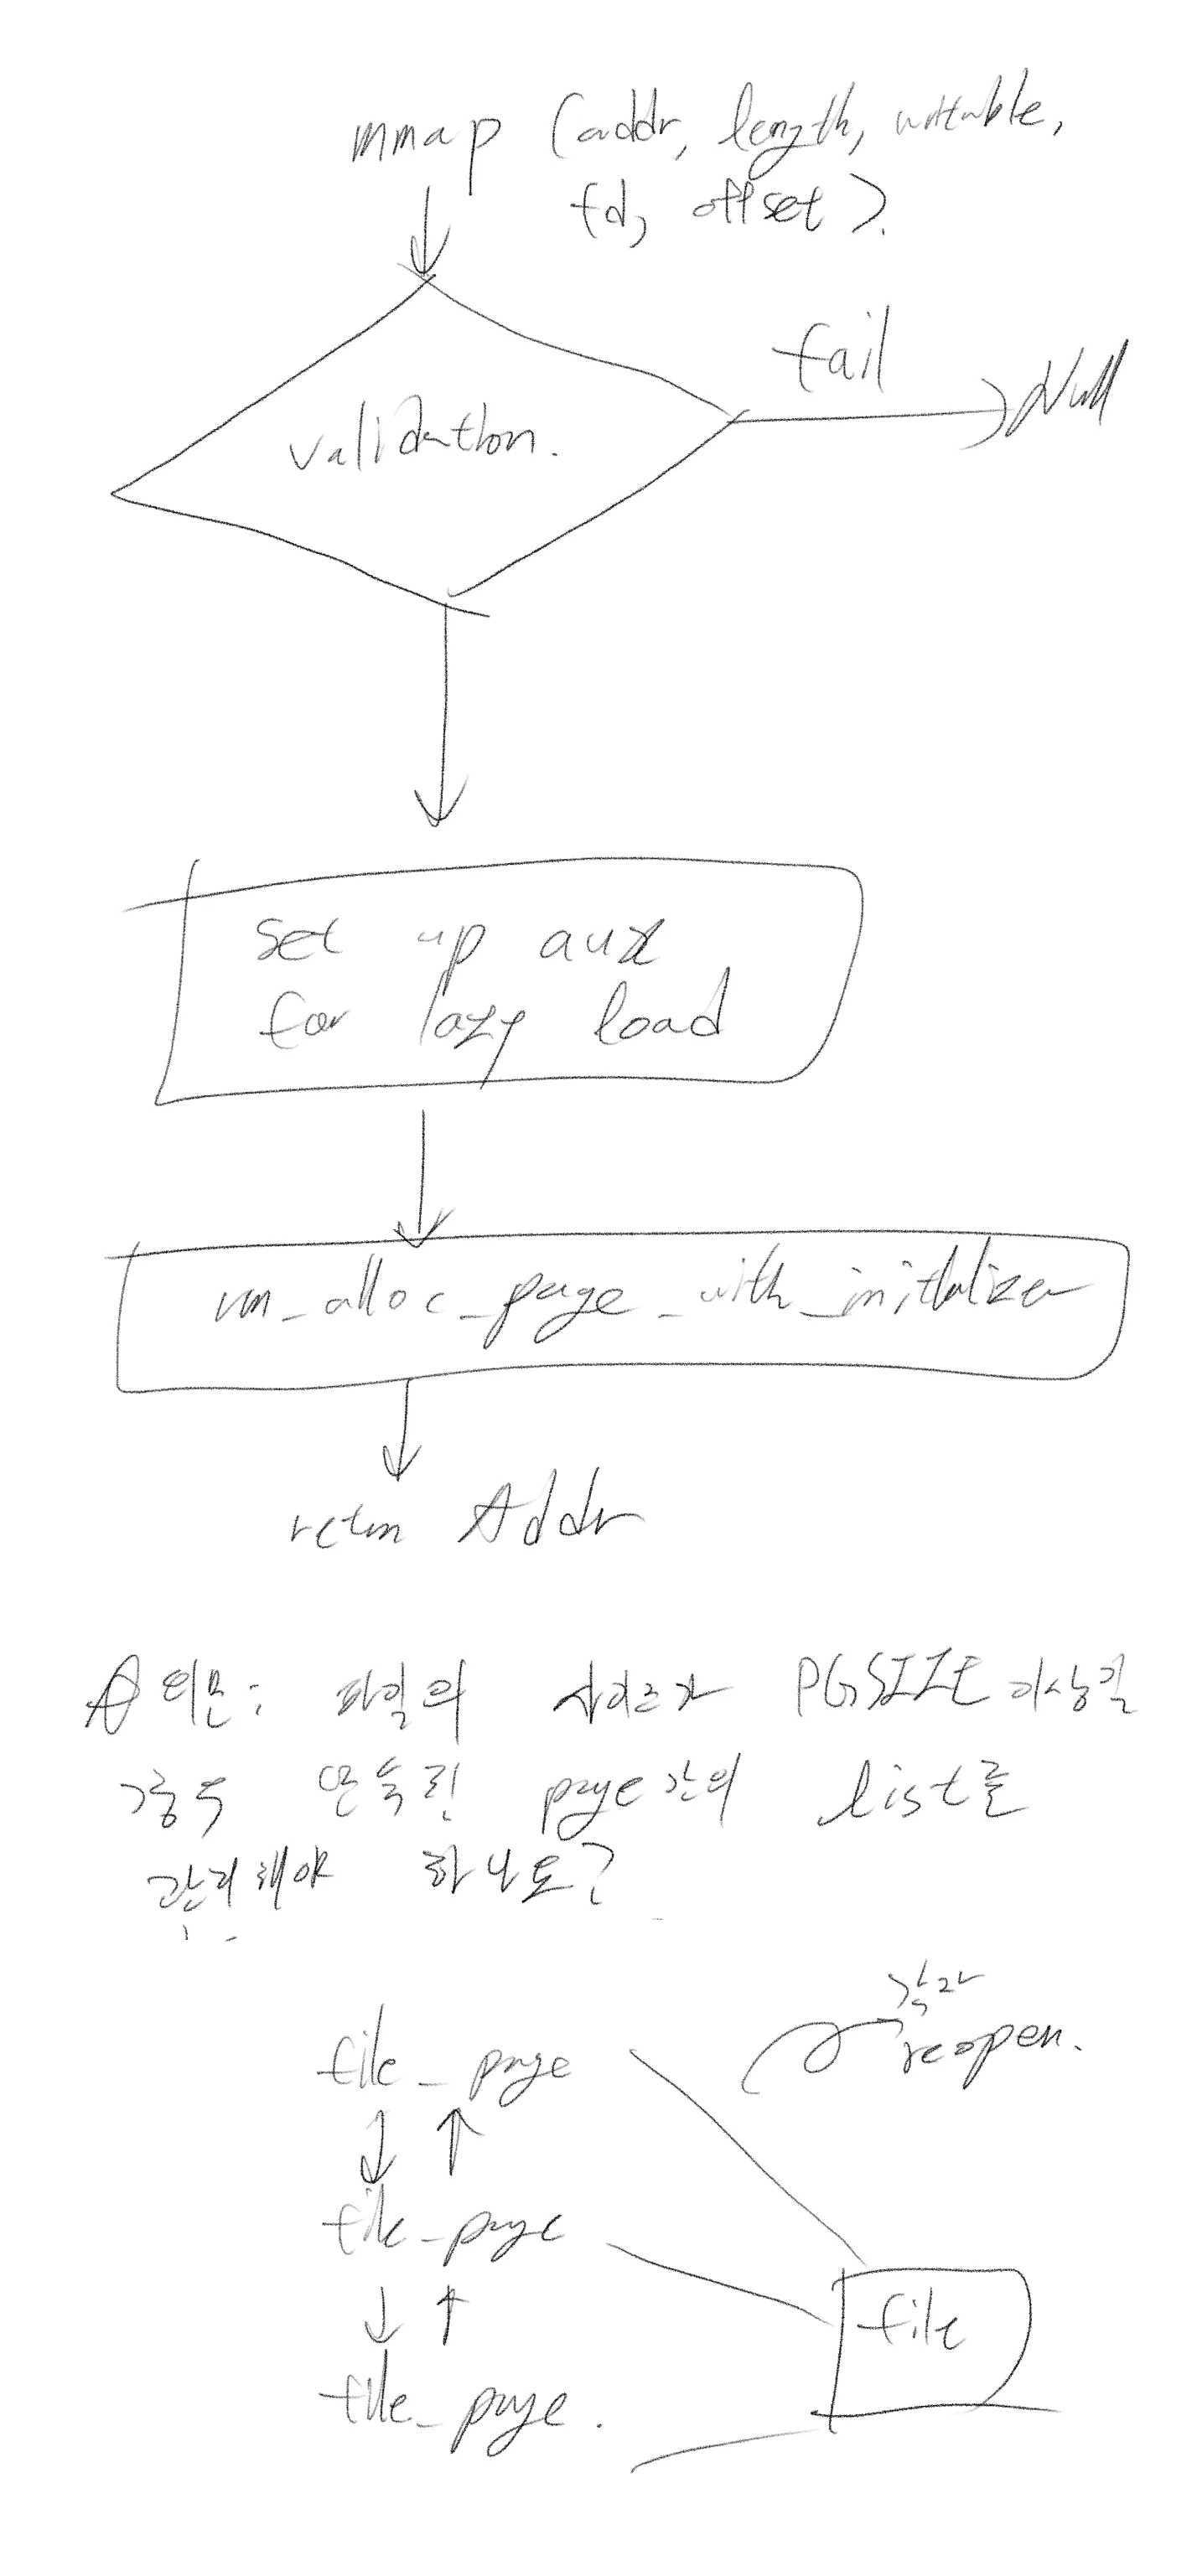 mmap (addr, length, writable,
fd, offset).
fail
Null
validation.
set up aux
for lazy load
vm_alloc_page_with_initializer
return Addr
의문: 파일의 사이즈가 PGSIZE 이상일
경우 만들어진 page간의 list를
관리해야 하나요?
각각
reopen.
file_page
file_page
file
file_page.